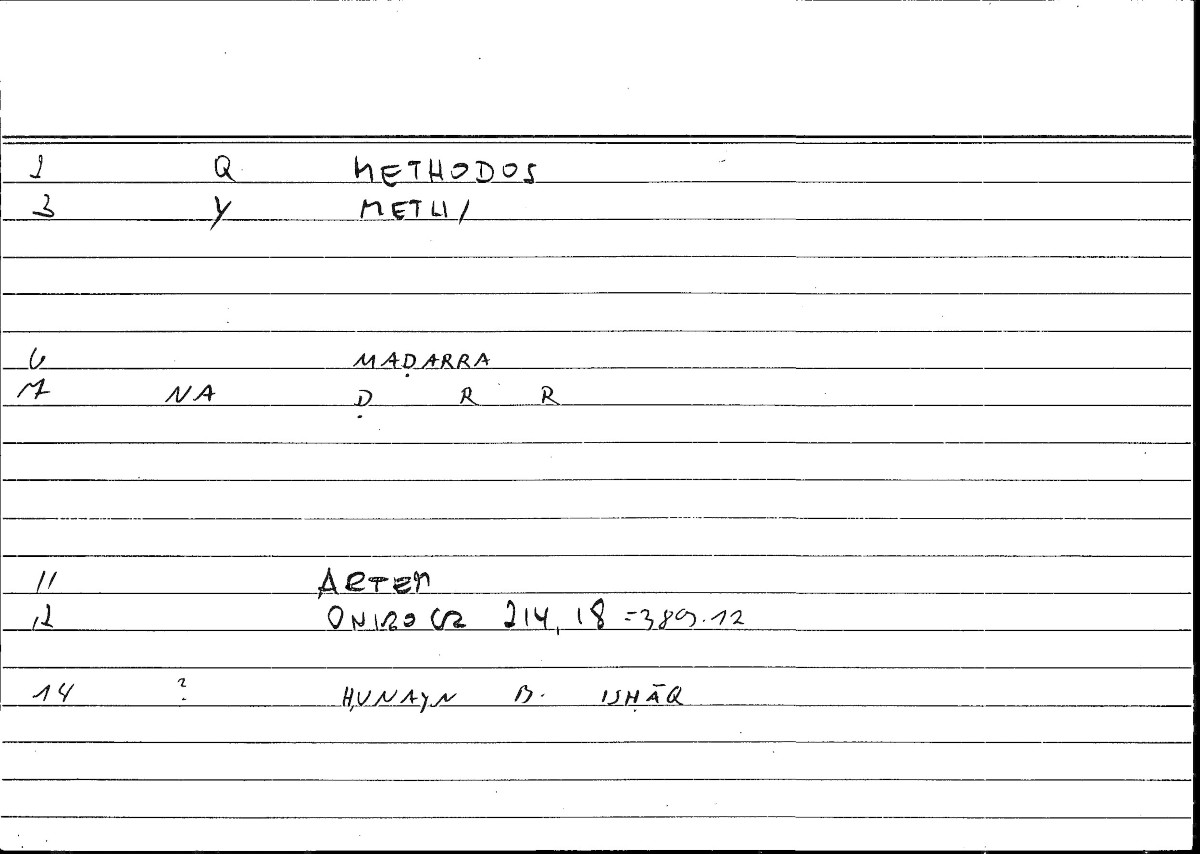 1 Q METHODOS
3 Y
6 MAḌARRA
7 NA Ḍ R R
11 ARTEM
12 ONIROCR 214, 18 = 389.12
14 ? ḤUNAYN B. ISḤĀQ